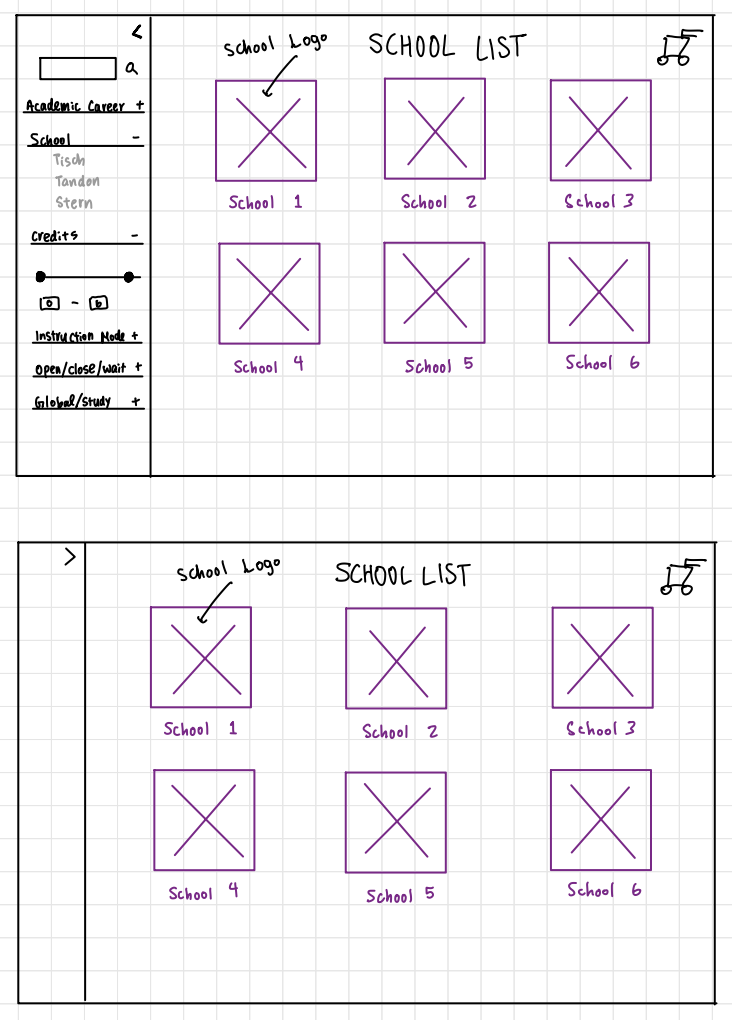 <
School Logo
SCHOOL LIST
a
Academic Career +
School -
Tisch
Tandon
Stern
Credits -
0 - 6
Instruction Mode +
Open/close/wait +
Global/study +
School 1
School 2
School 3
School 4
School 5
School 6
>
School Logo
SCHOOL LIST
School 1
School 2
School 3
School 4
School 5
School 6